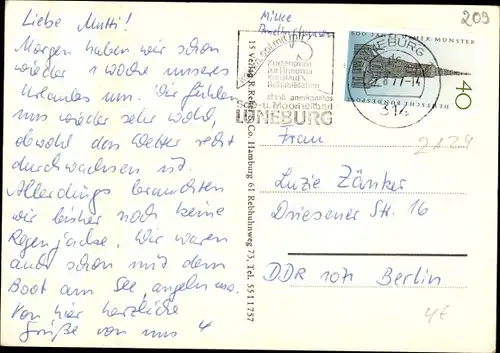 Liebe Mutti!
Morgen haben wir schon
wieder 1 Woche unseres
Urlaubes um. Wir fühlen
uns wieder sehr wohl,
obwohl das Wetter recht
durchwachsen ist.
Allerdings brauchten
wir bisher noch keine
Regenjacke. Wir waren
auch schon mit dem
Boot am See angeln usw.
Von hier herzliche
Grüße von uns 4
15 Verlag R. Reiher & Co. Hamburg 61 Rebhuhnweg 73, Tel. 551 17 57
209
Zugelassen
für Rheuma
Rehabilitation
staatl. anerkanntes
Sol- u. Moorheilbad
LÜNEBURG
LÜNEBURG
-14
314
600 JAHRE ULMER MÜNSTER
DEUTSCHE BUNDESPOST
40
Frau
2A24
Luzie Zänker
Driesener Str. 16
DDR 1071 Berlin
4€